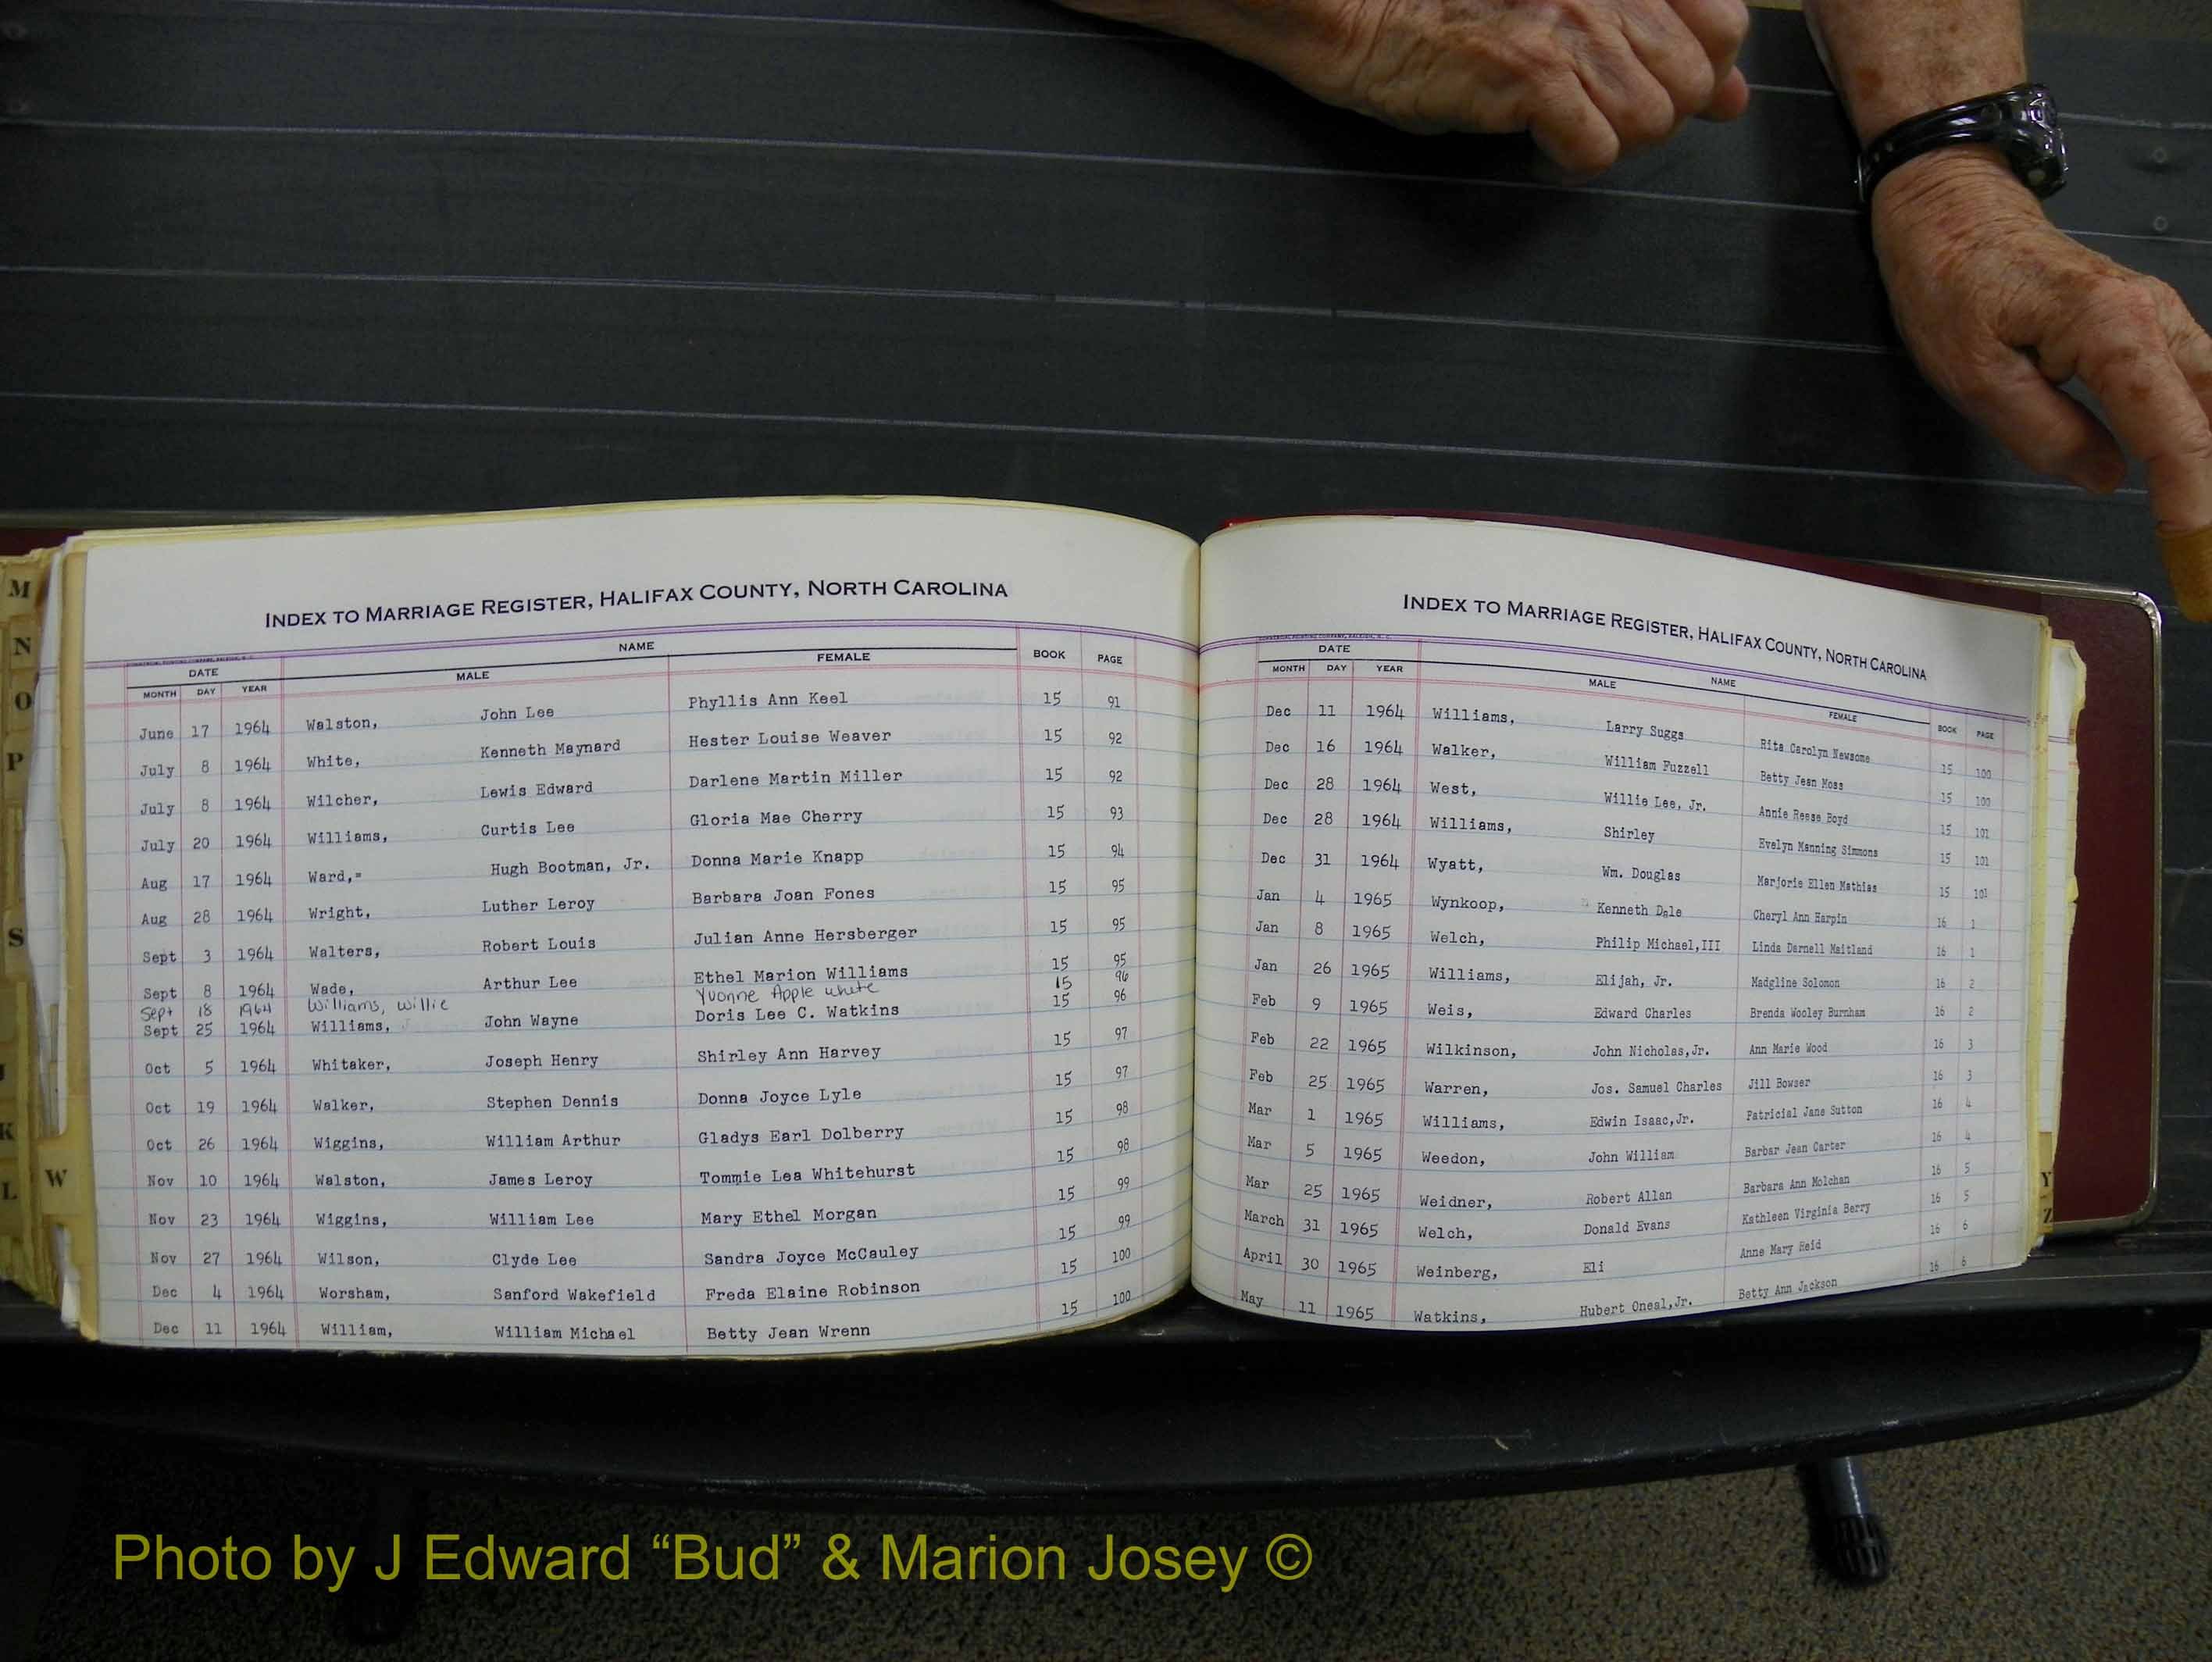 INDEX TO MARRIAGE REGISTER, HALIFAX COUNTY, NORTH CAROLINA
DATE NAME
MONTH DAY YEAR MALE FEMALE BOOK PAGE
June 17 1964 Walston, John Lee Phyllis Ann Keel 15 91
July 8 1964 White, Kenneth Maynard Hester Louise Weaver 15 92
July 8 1964 Wilcher, Lewis Edward Darlene Martin Miller 15 92
July 20 1964 Williams, Curtis Lee Gloria Mae Cherry 15 93
Aug 17 1964 Ward,= Hugh Bootman, Jr. Donna Marie Knapp 15 94
Aug 28 1964 Wright, Luther Leroy Barbara Joan Fones 15 95
Sept 3 1964 Walters, Robert Louis Julian Anne Hersberger 15 95
Sept 8 1964 Wade, Arthur Lee Ethel Marion Williams 15 95
Sept 18 1964 Williams, Willie Yvonne Apple white 15 96
Sept 25 1964 Williams, John Wayne Doris Lee C. Watkins 15 96
Oct 5 1964 Whitaker, Joseph Henry Shirley Ann Harvey 15 97
Oct 19 1964 Walker, Stephen Dennis Donna Joyce Lyle 15 97
Oct 26 1964 Wiggins, William Arthur Gladys Earl Dolberry 15 98
Nov 10 1964 Walston, James Leroy Tommie Lea Whitehurst 15 98
Nov 23 1964 Wiggins, William Lee Mary Ethel Morgan 15 99
Nov 27 1964 Wilson, Clyde Lee Sandra Joyce McCauley 15 99
Dec 4 1964 Worsham, Sanford Wakefield Freda Elaine Robinson 15 100
Dec 11 1964 William, William Michael Betty Jean Wrenn 15 100
INDEX TO MARRIAGE REGISTER, HALIFAX COUNTY, NORTH CAROLINA
DATE NAME
MONTH DAY YEAR MALE FEMALE BOOK PAGE
Dec 11 1964 Williams, Larry Suggs Rita Carolyn Newsome 15 100
Dec 16 1964 Walker, William Fuzzell Betty Jean Moss 15 100
Dec 28 1964 West, Willie Lee, Jr. Annie Reese Boyd 15 101
Dec 28 1964 Williams, Shirley Evelyn Manning Simmons 15 101
Dec 31 1964 Wyatt, Wm. Douglas Marjorie Ellen Mathias 15 101
Jan 4 1965 Wynkoop, Kenneth Dale Cheryl Ann Harpin 16 1
Jan 8 1965 Welch, Philip Michael,III Linda Darnell Maitland 16 1
Jan 26 1965 Williams, Elijah, Jr. Madgline Solomon 16 2
Feb 9 1965 Weis, Edward Charles Brenda Wooley Burnham 16 2
Feb 22 1965 Wilkinson, John Nicholas,Jr. Ann Marie Wood 16 3
Feb 25 1965 Warren, Jos. Samuel Charles Jill Bowser 16 3
Mar 1 1965 Williams, Edwin Isaac,Jr. Patricial Jane Sutton 16 4
Mar 5 1965 Weedon, John William Barbar Jean Carter 16 4
Mar 25 1965 Weidner, Robert Allan Barbara Ann Molchan 16 5
March 31 1965 Welch, Donald Evans Kathleen Virginia Berry 16 5
April 30 1965 Weinberg, Eli Anne Mary Reid 16 6
May 11 1965 Watkins, Hubert Oneal,Jr. Betty Ann Jackson 16 6
M
N
O
P
S
K
L
W
Y
Z
Photo by J Edward “Bud” & Marion Josey ©